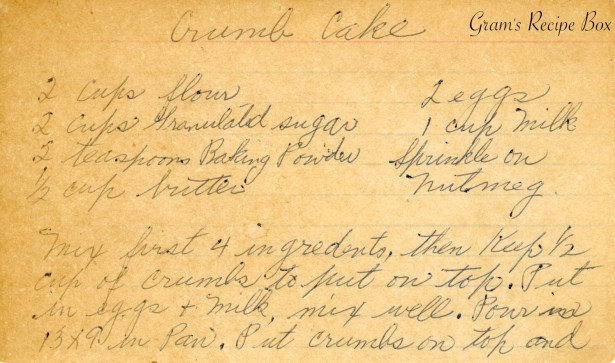 Crumb Cake
Gram's Recipe Box
2 cups flour
2 cups Granulated sugar
2 teaspoons Baking Powder
1/2 cup butter
2 eggs
1 cup Milk
Sprinkle on
Nutmeg.
Mix first 4 ingredents, then Keep 1/2
cup of crumbs to put on top. Put
in eggs + Milk, mix well. Pour in
13X9 in Pan. Put crumbs on top and